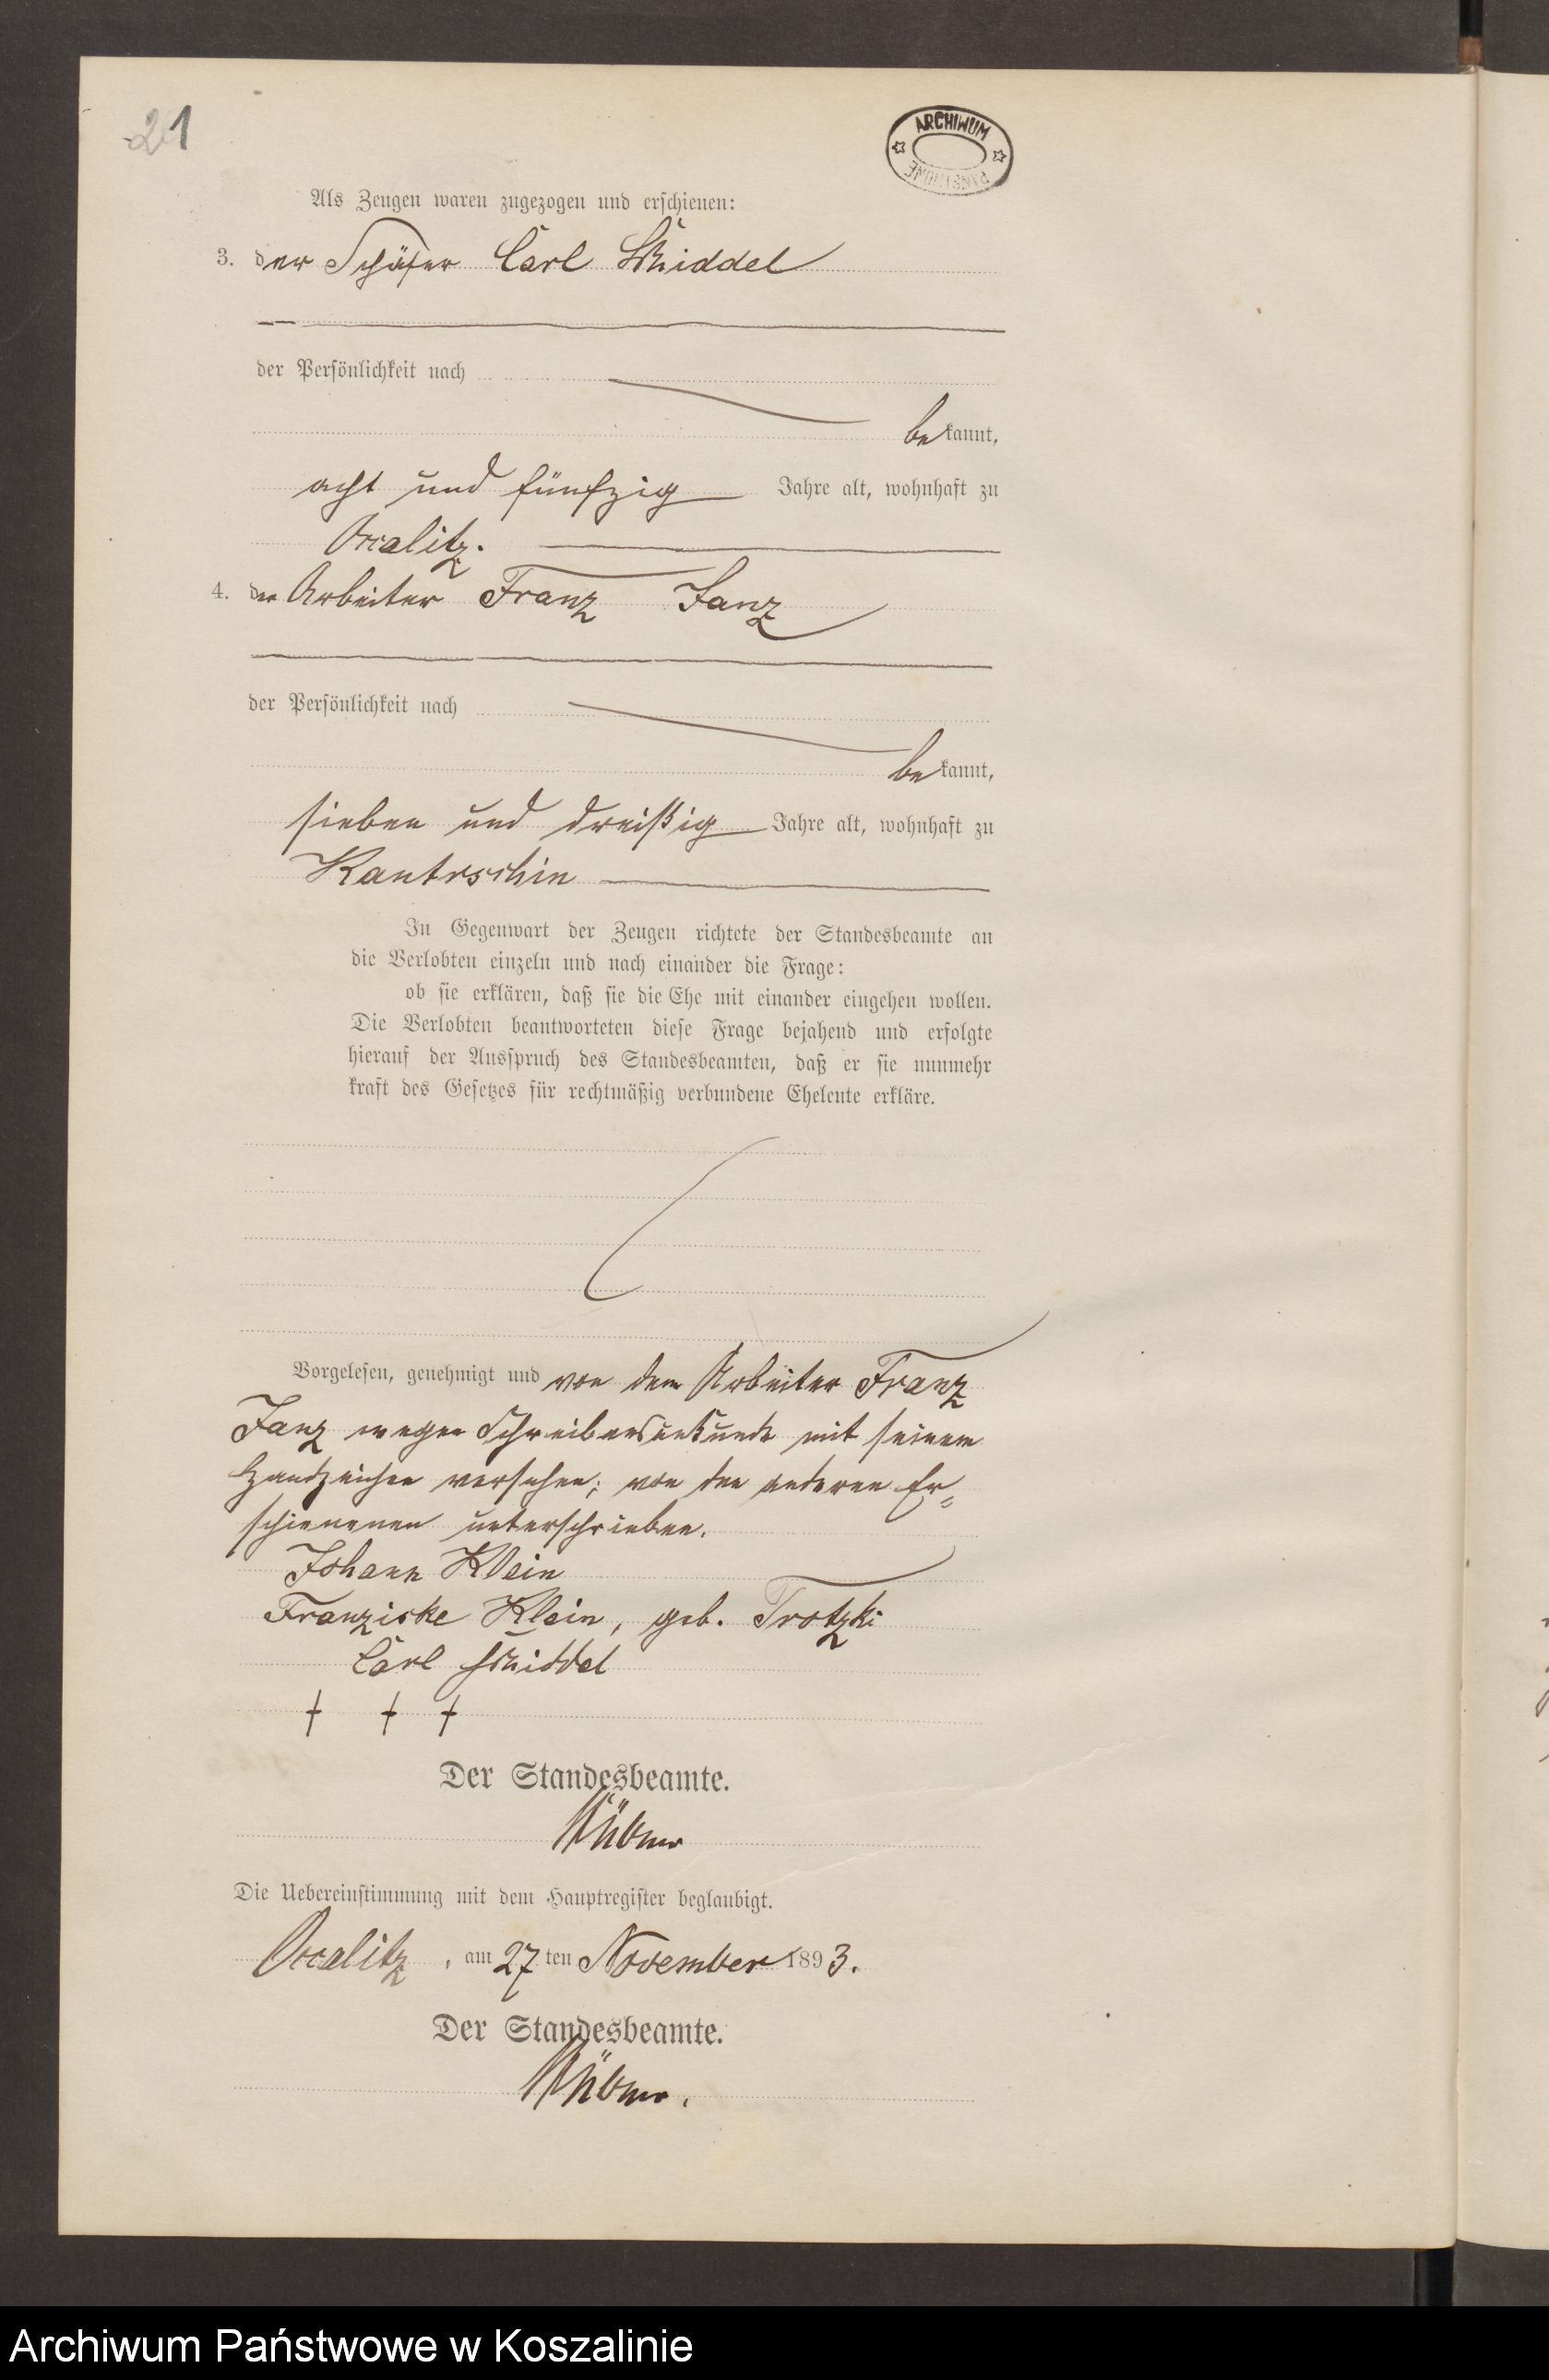 21
ARCHIWUM
PAŃSTWOWE
Als Zeugen waren zugezogen und erschienen:
3. der Schäfer Carl Schiddel
der Persönlichkeit nach
bekannt,
acht und fünfzig Jahre alt, wohnhaft zu
Occalitz.
4. der Arbeiter Franz Janz
der Persönlichkeit nach
bekannt,
sieben und dreißig Jahre alt, wohnhaft zu
Kantrschin
In Gegenwart der Zeugen richtete der Standesbeamte an
die Verlobten einzeln und nach einander die Frage:
ob sie erklären, daß sie die Ehe mit einander eingehen wollen.
Die Verlobten beantworteten diese Frage bejahend und erfolgte
hierauf der Ausspruch des Standesbeamten, daß er sie nunmehr
kraft des Gesetzes für rechtmäßig verbundene Eheleute erkläre.
Vorgelesen, genehmigt und von dem Arbeiter Franz
Janz wegen Schreibensunkunde mit seinem
Handzeichen versehen; von den anderen Er-
schienenen unterschrieben.
Johann Klein
Franziske Klein, geb. Trotzki
Carl Schiddel
† † †
Der Standesbeamte.
Die Uebereinstimmung mit dem Hauptregister beglaubigt.
Occalitz, am 27 ten November 1893.
Der Standesbeamte.
Archiwum Państwowe w Koszalinie